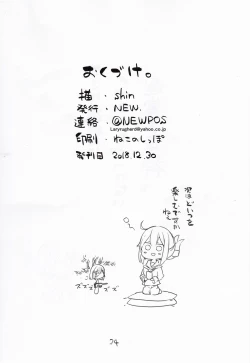 おくづけ。
描 ・ shin
発行 ・ NEW.
連絡 ・ @NEWPOS
Laryrugherd@yahoo.co.jp
印刷 ・ ねこのしっぽ
発刊日 2018.12.30
次はどいつを
楽しむですか
ズズ
ズズ
24